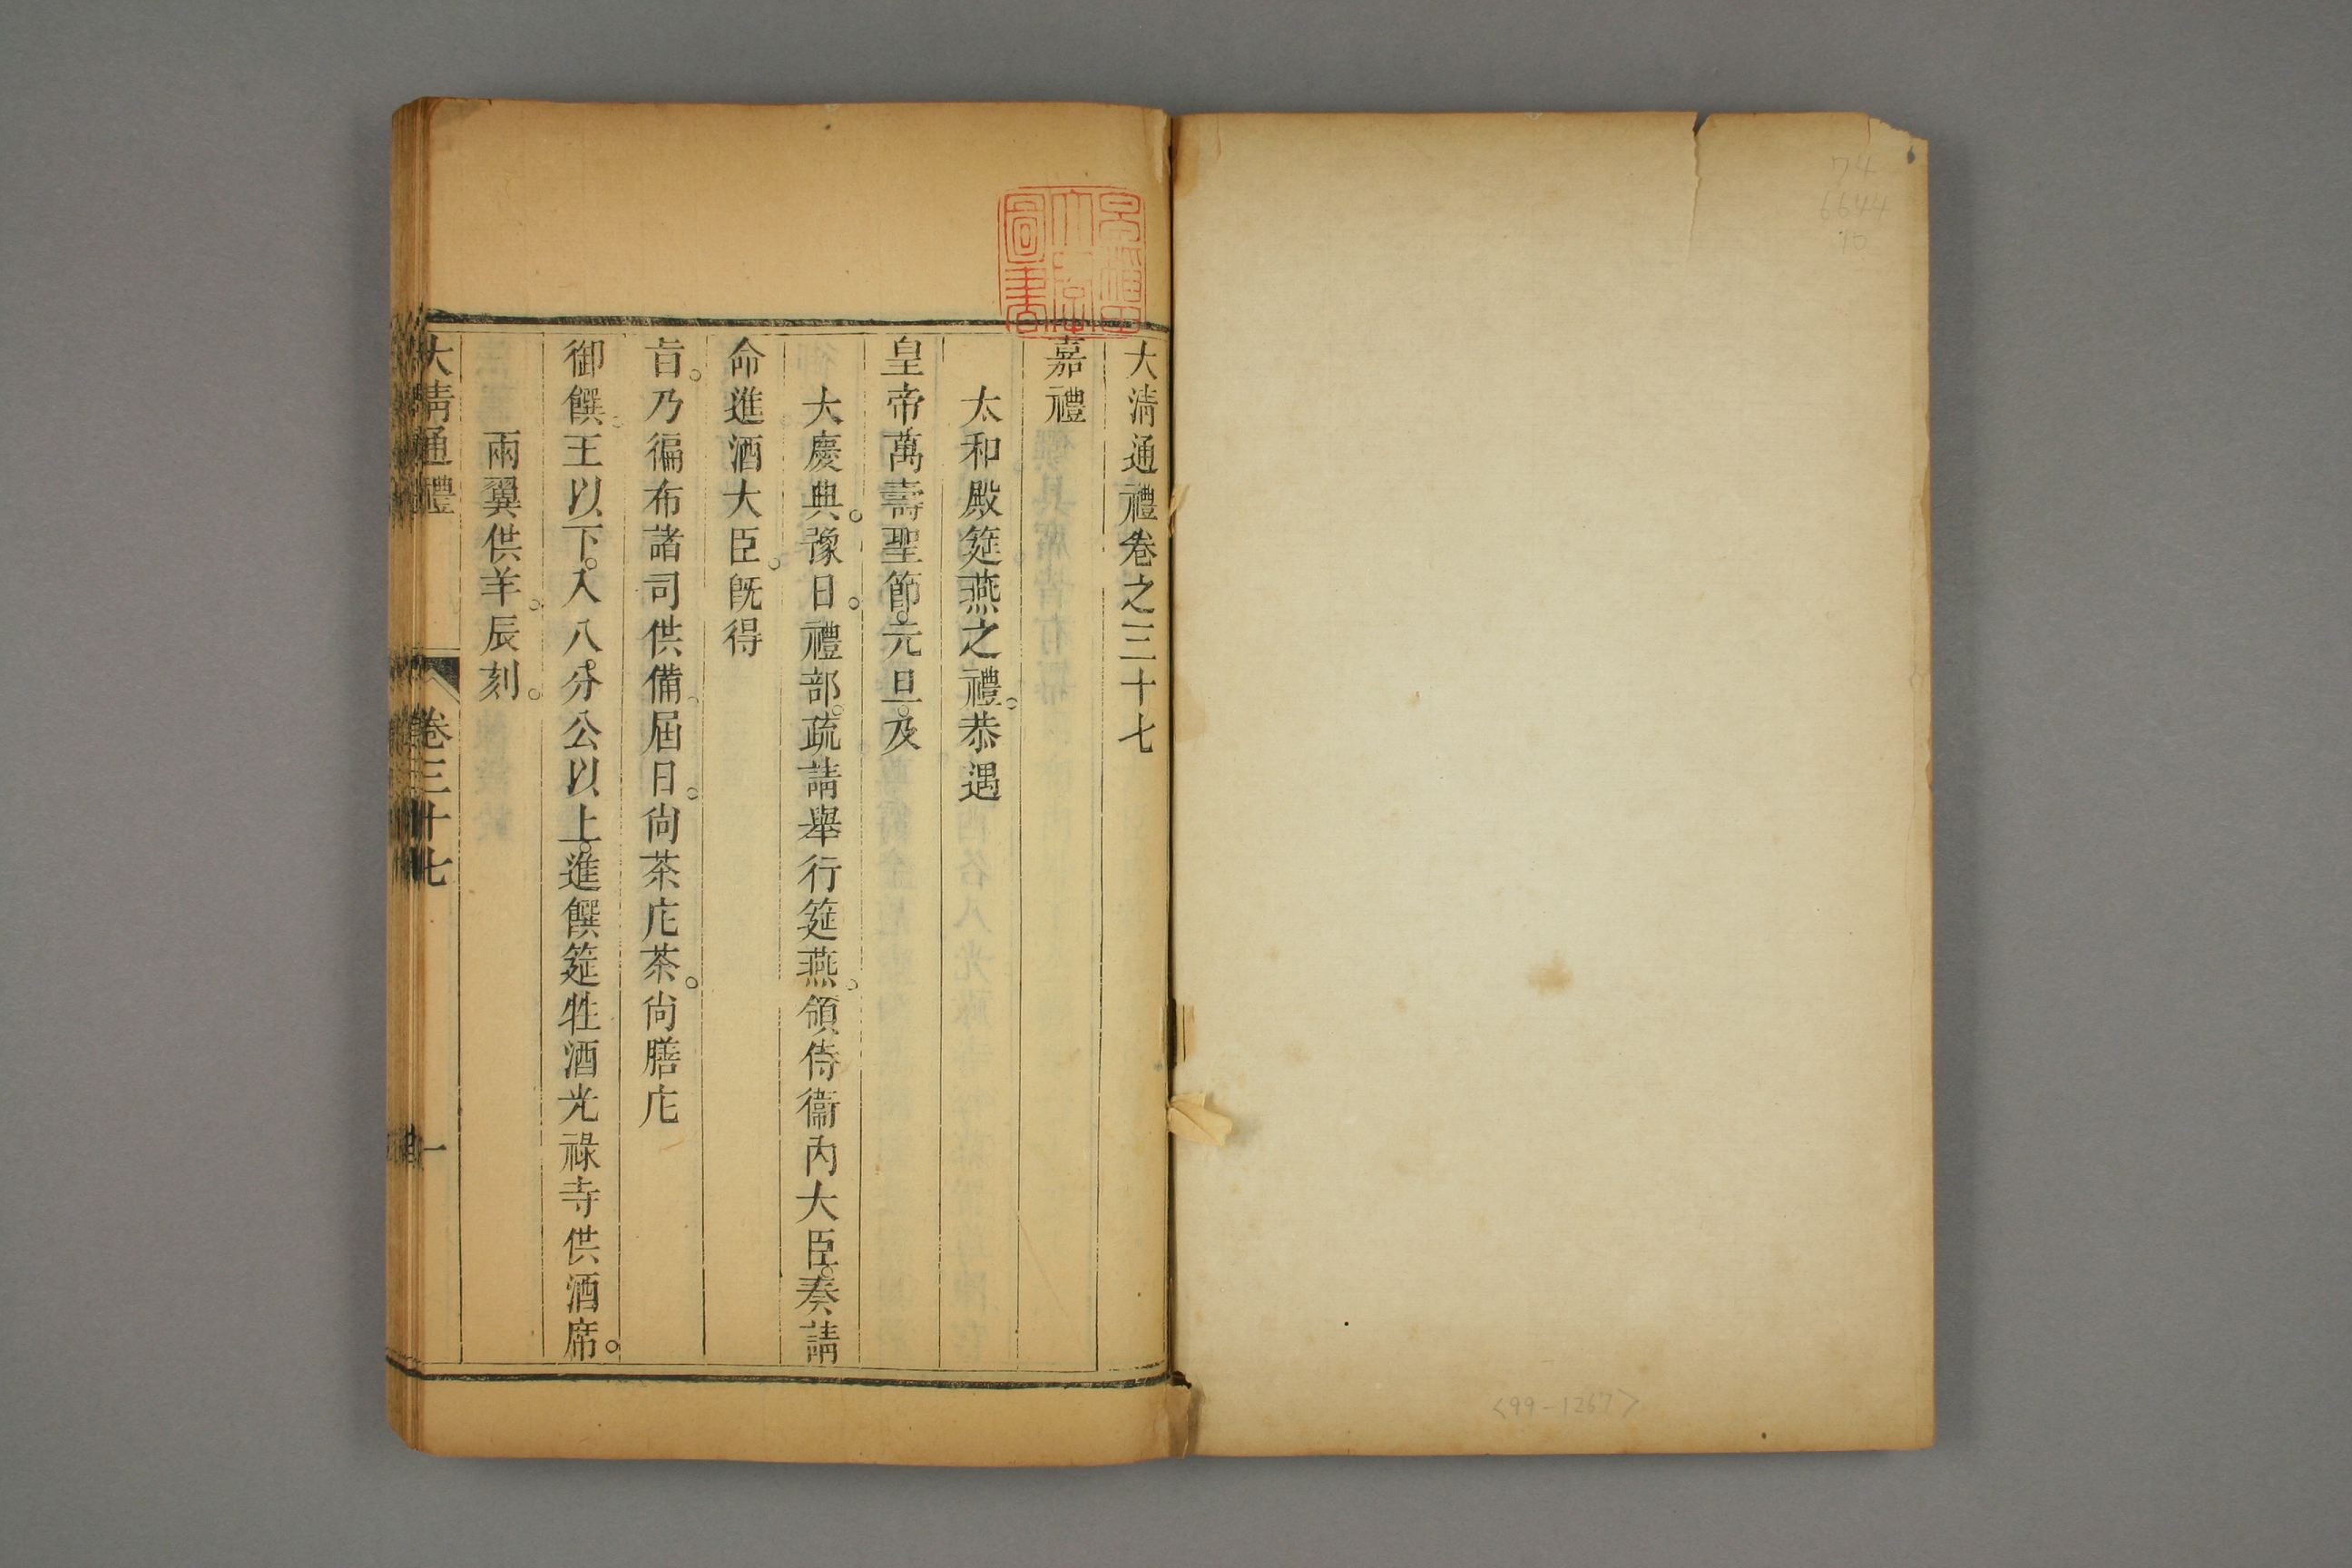 大清通禮卷之三十七
嘉禮
太和殿筵燕之禮。恭遇
皇帝萬壽聖節。元旦。及
大慶典。豫日。禮部。疏請舉行筵燕。領侍衞內大臣。奏請
命進酒大臣。旣得
旨。乃徧布諸司供備。屆日。尙茶庀茶。尙膳庀
御饌。王以下。入八分公以上。進饌筵牲酒光祿寺供酒席。
兩翼供羊。辰刻。
大清通禮 卷三十七 一
74
6644
10
<99-1267>